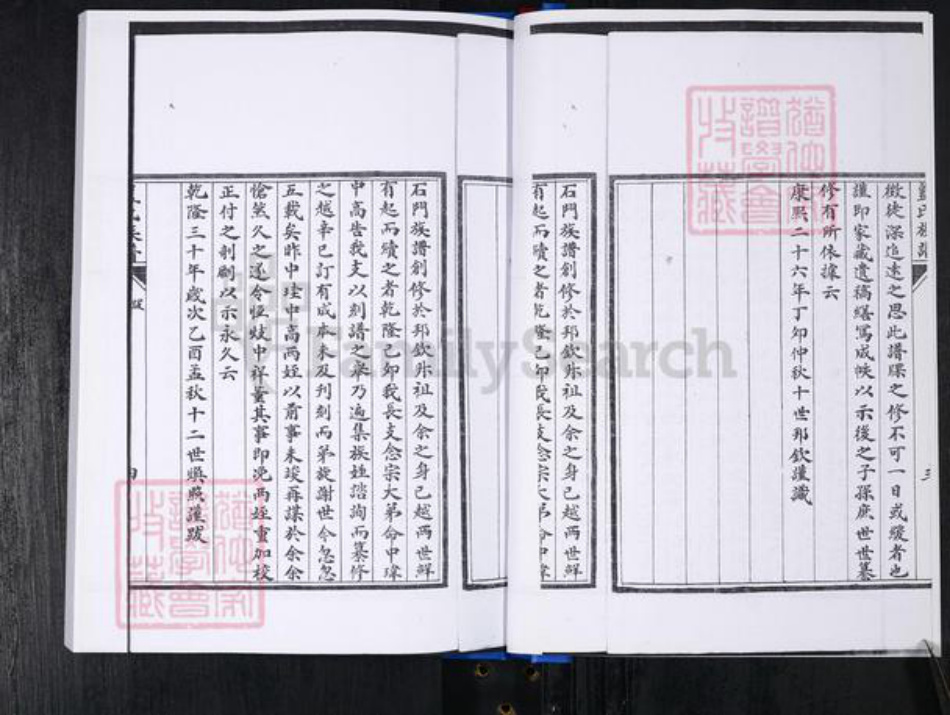 徴徒深追遠之思此譜牒之修不可一日或緩者也
謹即家藏遺稿繕寫成帙以示後之子孫庶世世纂
修有所依據云
康熙二十六年丁卯仲秋十世邦欽謹識
石門族譜創修於邦欽升祖及余之身已越兩世鮮
有起而續之者乾隆己卯我長支念宗大弟命中瑋
石門族譜創修於邦欽升祖及余之身已越兩世鮮
有起而續之者乾隆己卯我長支念宗大弟命中瑋
中高告我支以刻譜之舉乃遍集族姪諮詢而纂修
之越辛巳訂有成本未及刊刻而弟旋謝世今忽忽
五載矣昨中瑋中高兩姪以前事未竣再謀於余余
愴然久之遂令恒姪中祥董其事即浼兩姪重加校
正付之剞劂以示永久云
乾隆三十年歲次乙酉孟秋十二世煥照謹跋
跋
FamilySearch
譜學會
收藏
譜學會
收藏